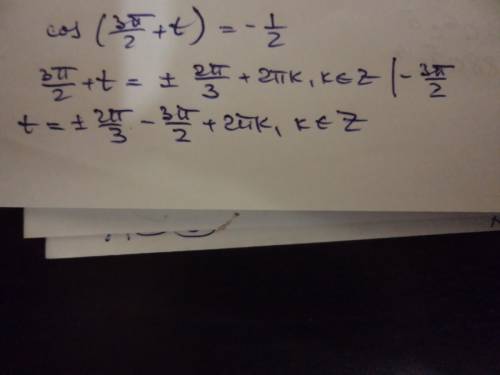 cos (3π/2 + t) = -1/2
3π/2 + t = ± 2π/3 + 2πk, k∈Z | - 3π/2
t = ± 2π/3 - 3π/2 + 2πk, k∈Z